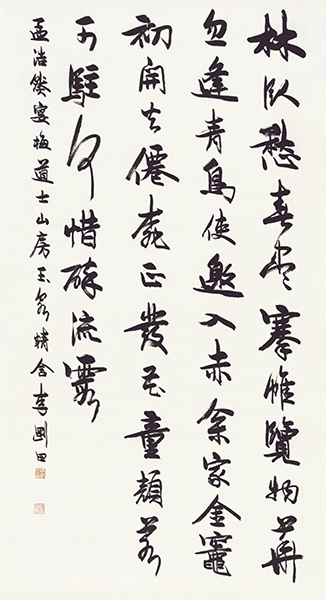 林臥愁春盡搴帷覽物華
忽逢青鳥使邀入赤松家金竈
初開火僊桃正發花童顏若
可駐何惜醉流霞
孟浩然宴梅道士山房玉泉精舍李剛田